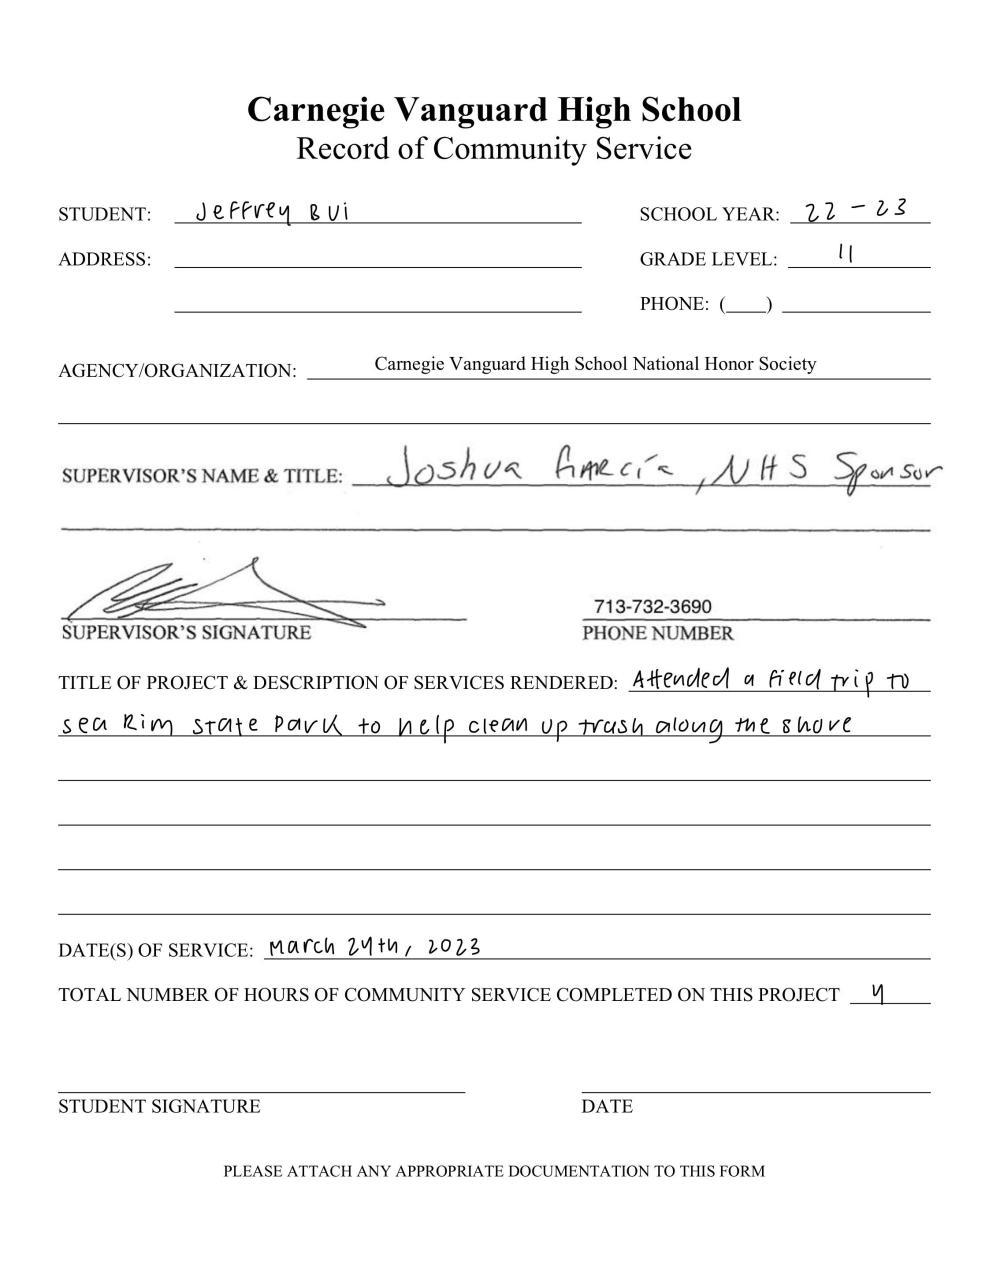 Carnegie Vanguard High School
Record of Community Service
STUDENT: Jeffrey Bui SCHOOL YEAR: 22 - 23
ADDRESS: GRADE LEVEL: 11
PHONE: (____)
AGENCY/ORGANIZATION: Carnegie Vanguard High School National Honor Society
SUPERVISOR'S NAME & TITLE: Joshua García, NHS Sponsor
713-732-3690
SUPERVISOR'S SIGNATURE PHONE NUMBER
TITLE OF PROJECT & DESCRIPTION OF SERVICES RENDERED: Attended a field trip to
sea Rim state Park to help clean up trash along the shore
DATE(S) OF SERVICE: March 24th, 2023
TOTAL NUMBER OF HOURS OF COMMUNITY SERVICE COMPLETED ON THIS PROJECT 4
STUDENT SIGNATURE DATE
PLEASE ATTACH ANY APPROPRIATE DOCUMENTATION TO THIS FORM